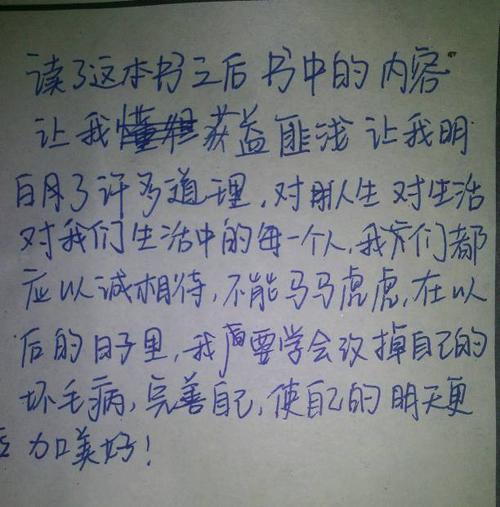 读了这本书之后 书中的内容
让我获益匪浅 让我明
白月了许多道理，对人生 对生活
对我们生活中的每一个人，我们都
应以诚相待，不能马马虎虎，在以
后的日子里，我要学会改掉自己的
坏毛病，完善自己，使自己的明天更
加美好！